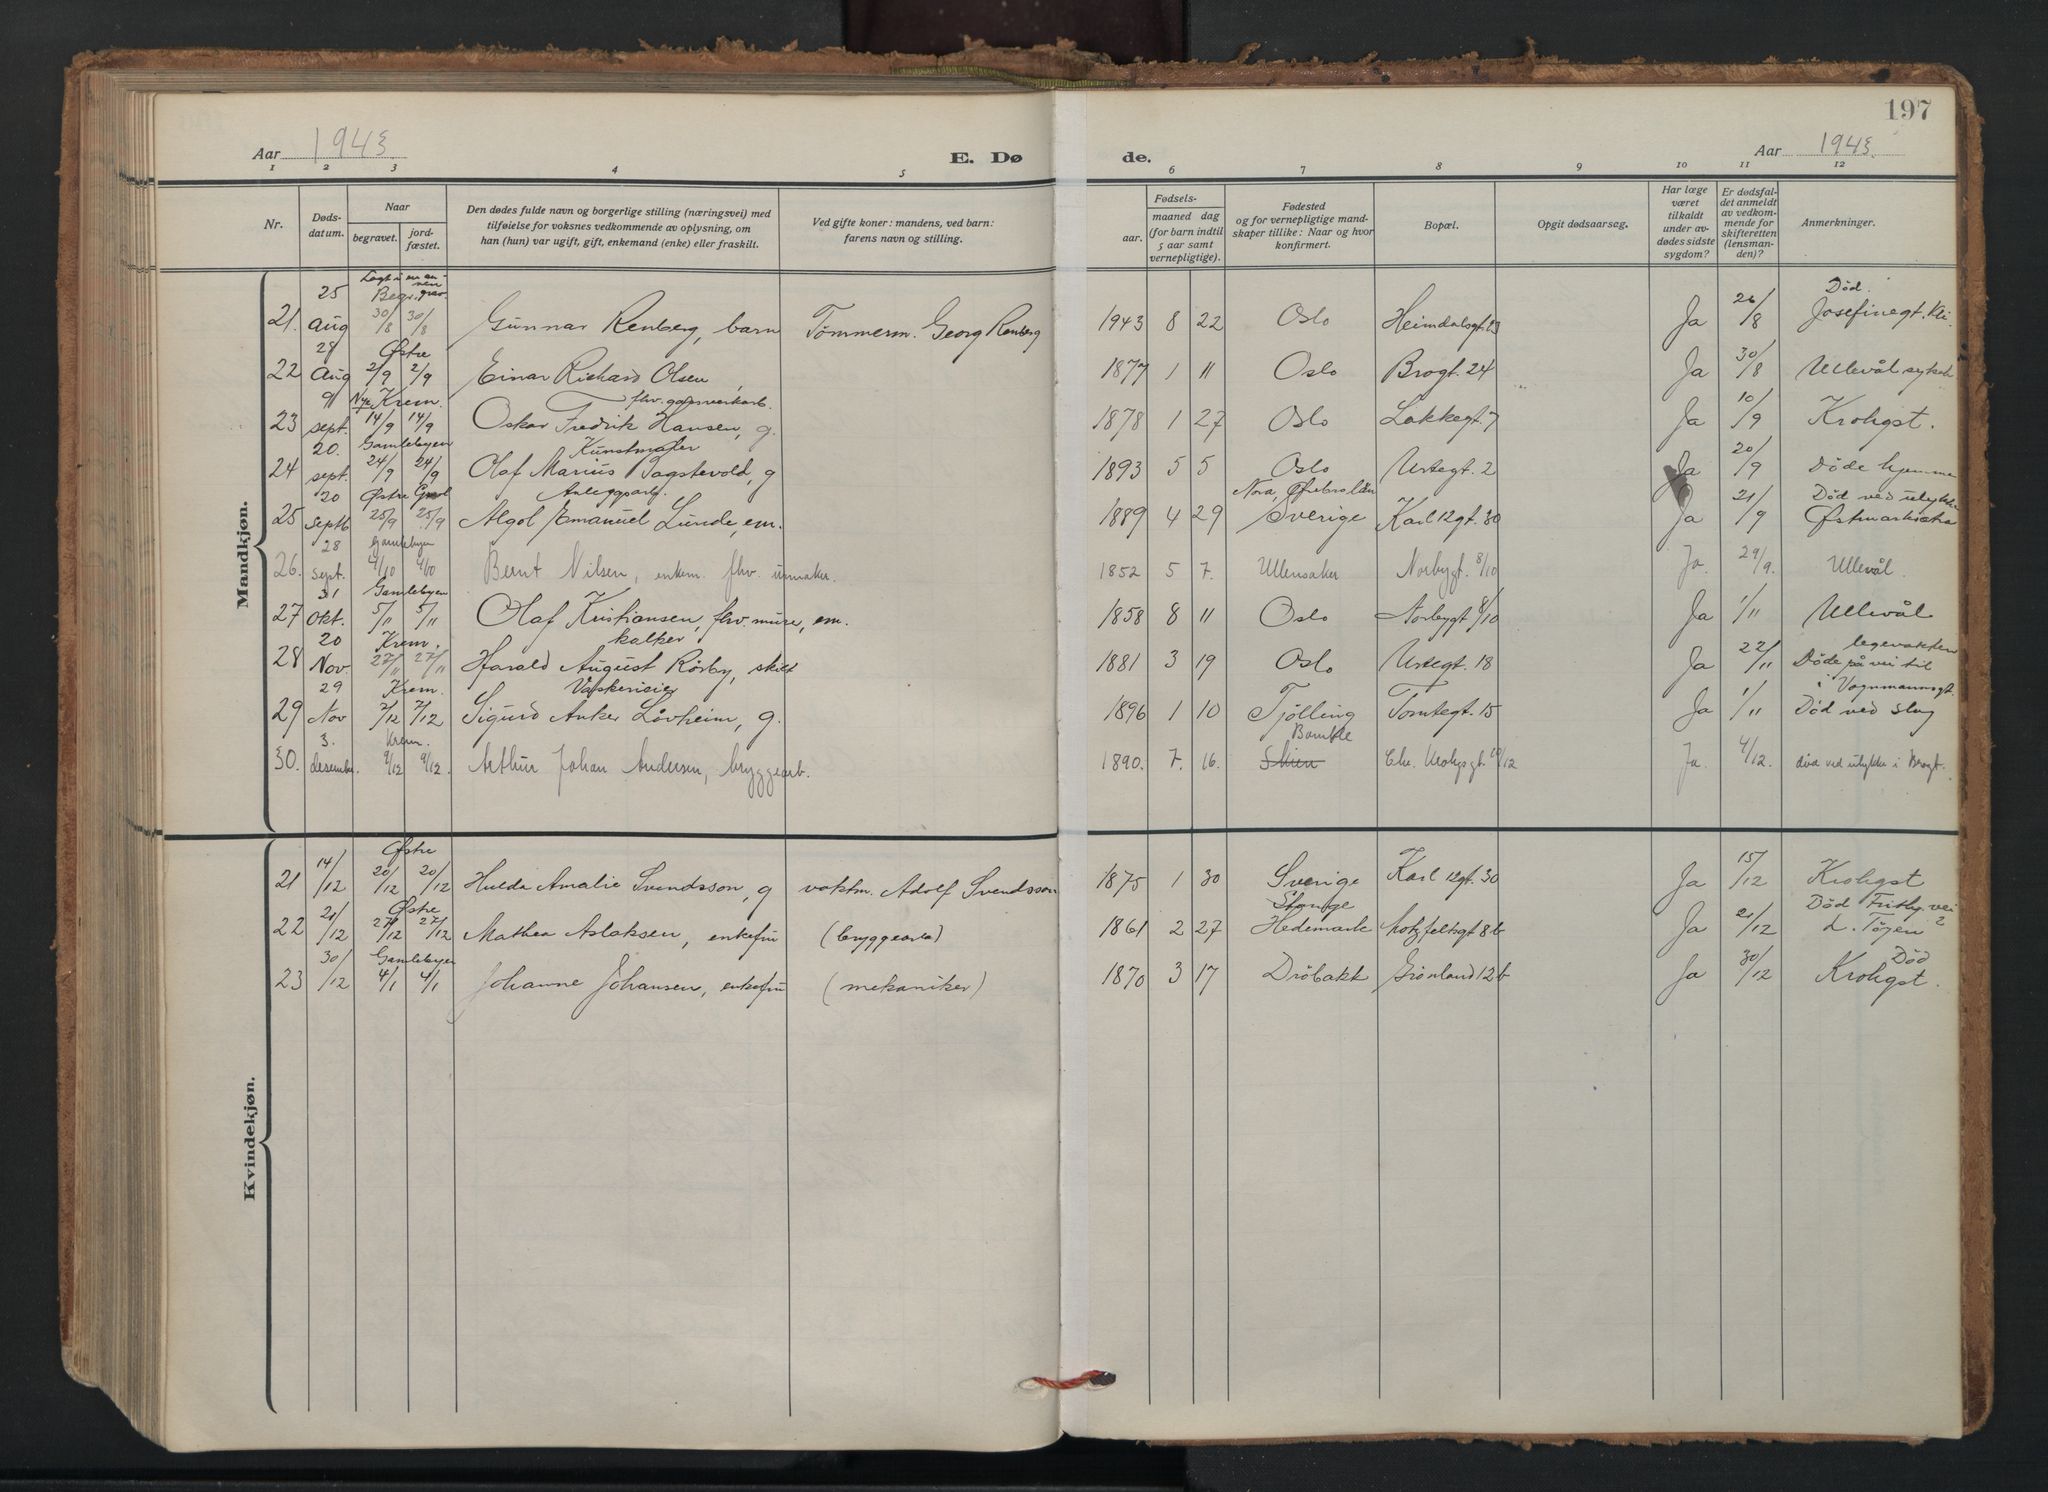 197
Aar 1943
E. Dø
de.
Aar 1943.
1 2 3 4 5 6 7 8 9 10 11 12
Nr.
Døds-
datum.
Naar
begravet.
jord-
fæstet.
Den dødes fulde navn og borgerlige stilling (næringsvei) med
tilføielse for voksnes vedkommende av oplysning, om
han (hun) var ugift, gift, enkemand (enke) eller fraskilt.
Ved gifte koner: mandens, ved barn:
farens navn og stilling.
Fødsels-
aar.
maaned dag
(for barn indtil
5 aar samt
vernepligtige).
Fødested
og for vernepligtige mand-
skaper tillike: Naar og hvor
konfirmert.
Bopæl.
Opgit dødsaarsag.
Har læge
været
tilkaldt
under av-
dødes sidste
sygdom?
Er dødsfal-
det anmeldt
av vedkom-
mende for
skifteretten
(lensman-
den)?
Anmerkninger.
Mandkjøn.
Lagt i en
Begr. grav.
25 Død
21. Aug 30/8 30/8 Gunnar Renberg, barn Tømmerm. Georg Renberg 1943 8 22 Oslo Heimdalsgt. 23 Ja 26/8 Josefinegt. Kli.
28 Østre
22 Aug 2/9 2/9 Einar Richard Olsen, 1877 1 11 Oslo Brogt. 24 Ja 30/8 Ullevål sykeh
9 Nye Krem. fhv. gassverkarb.
23 sept. 14/9 14/9 Oskar Fredrik Hansen, g. 1878 1 27 Oslo Lakkegt. 7 Ja 10/9 Krohgst.
20. Gamlebyen Kunstmaler
24 sept. 24/9 24/9 Olaf Marius Tagstevold, g 1893 5 5 Oslo Urtegt. 2 Ja 20/9 Døde hjemme
20 Østre Anleggsarb. Nora, Ørebro län Død ved ulykke
25 septb 25/9 25/9 Algol Emanuel Lunde, em. 1889 4 29 Sverige Karl 12gt. 30 Ja 21/9
28 Gamlebyen
26. sept. 4/10 4/10 Bernt Nilsen, enkem. fhv. urmaker. 1852 5 7. Ullensaker Norbygt. 8/10 Ja. 29/9. Ullevål.
31 Gamlebyen
27 Okt. 5/11 5/11 Olaf Kristiansen, fhv. murer, em. 1858 8 11 Oslo Norbygt 8/10 Ja 1/11 Ullevål
20 Krem. kalker legevakten
28 Nov. 27/11 27/11 Harald August Rörby, skilt 1881 3 19 Oslo Urtegt. 18 Ja 22/11 Døde på vei til
29 Krem. Vaskerieier i Vognmannsgt.
29 Nov 7/12 7/12 Sigurd Anker Lövheim, g. 1896 1 10 Tjølling Tomtegt. 15 Ja 1/11 Død ved slag
3. Krem. Bamble
30. desember. 9/12 9/12. Arthur Johan Andersen, bryggearb. 1890. 7. 16. Skien Chr. Krohgsgt. 10/12 Ja. 4/12. død ved ulykke i Brogt.
Kvindekjøn.
Østre
21 14/12 20/12 20/12 Hulda Amalie Svendsson, g vaktm. Adolf Svendsson 1875 1 30 Sverige Karl 12gt. 30 Ja 15/12 Krohgst
Østre Stange Død Frithj. vei 2
22 21/12 27/12 27/12 Mathea Aslaksen, enkefru (bryggearb) 1861 2 27 Hedemark Motzfeltsgt 8b Ja 21/12 L. Tøyen
Gamlebyen Død
23 30/12 4/1 4/1 Johanne Johansen, enkefru (mekaniker) 1870 3 17 Dröbakk Grønland 12b Ja 30/12 Krohgst.